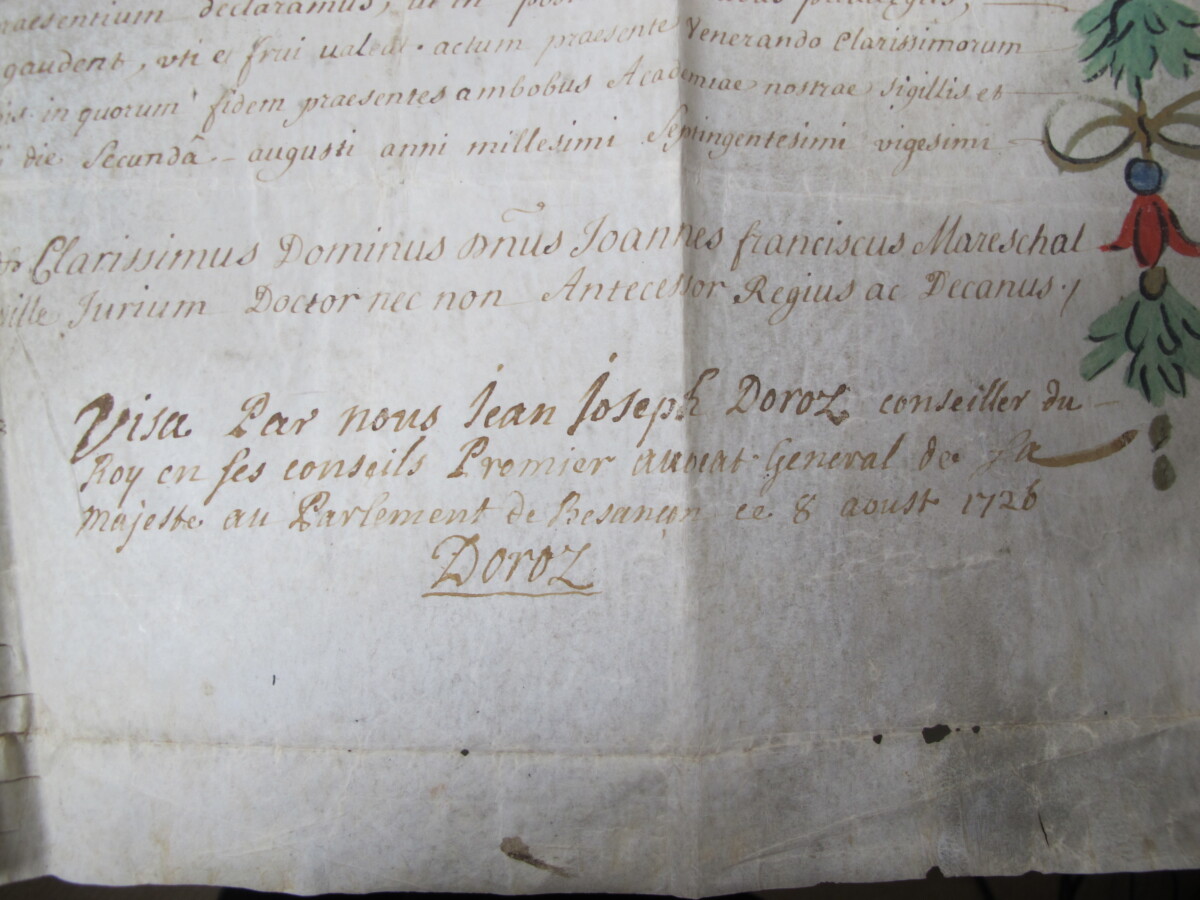 praesentium declaramus, ut in
gaudent, uti et frui valeat. actum praesente Venerando Clarissimorum
in quorum fidem praesentes ambobus Academiae nostrae sigillis et
die Secundâ augusti anni millesimi Septingentesimi vigesimi
Clarissimus Dominus Dnūs Joannes franciscus Mareschal
Jurium Doctor nec non Antecessor Regius ac Decanus
Visa Par nous Jean Joseph Doroz conseiller du
Roy en ses conseils Premier avocat General de Sa
Majeste au Parlement de Besançon ce 8 aoust 1726
Doroz